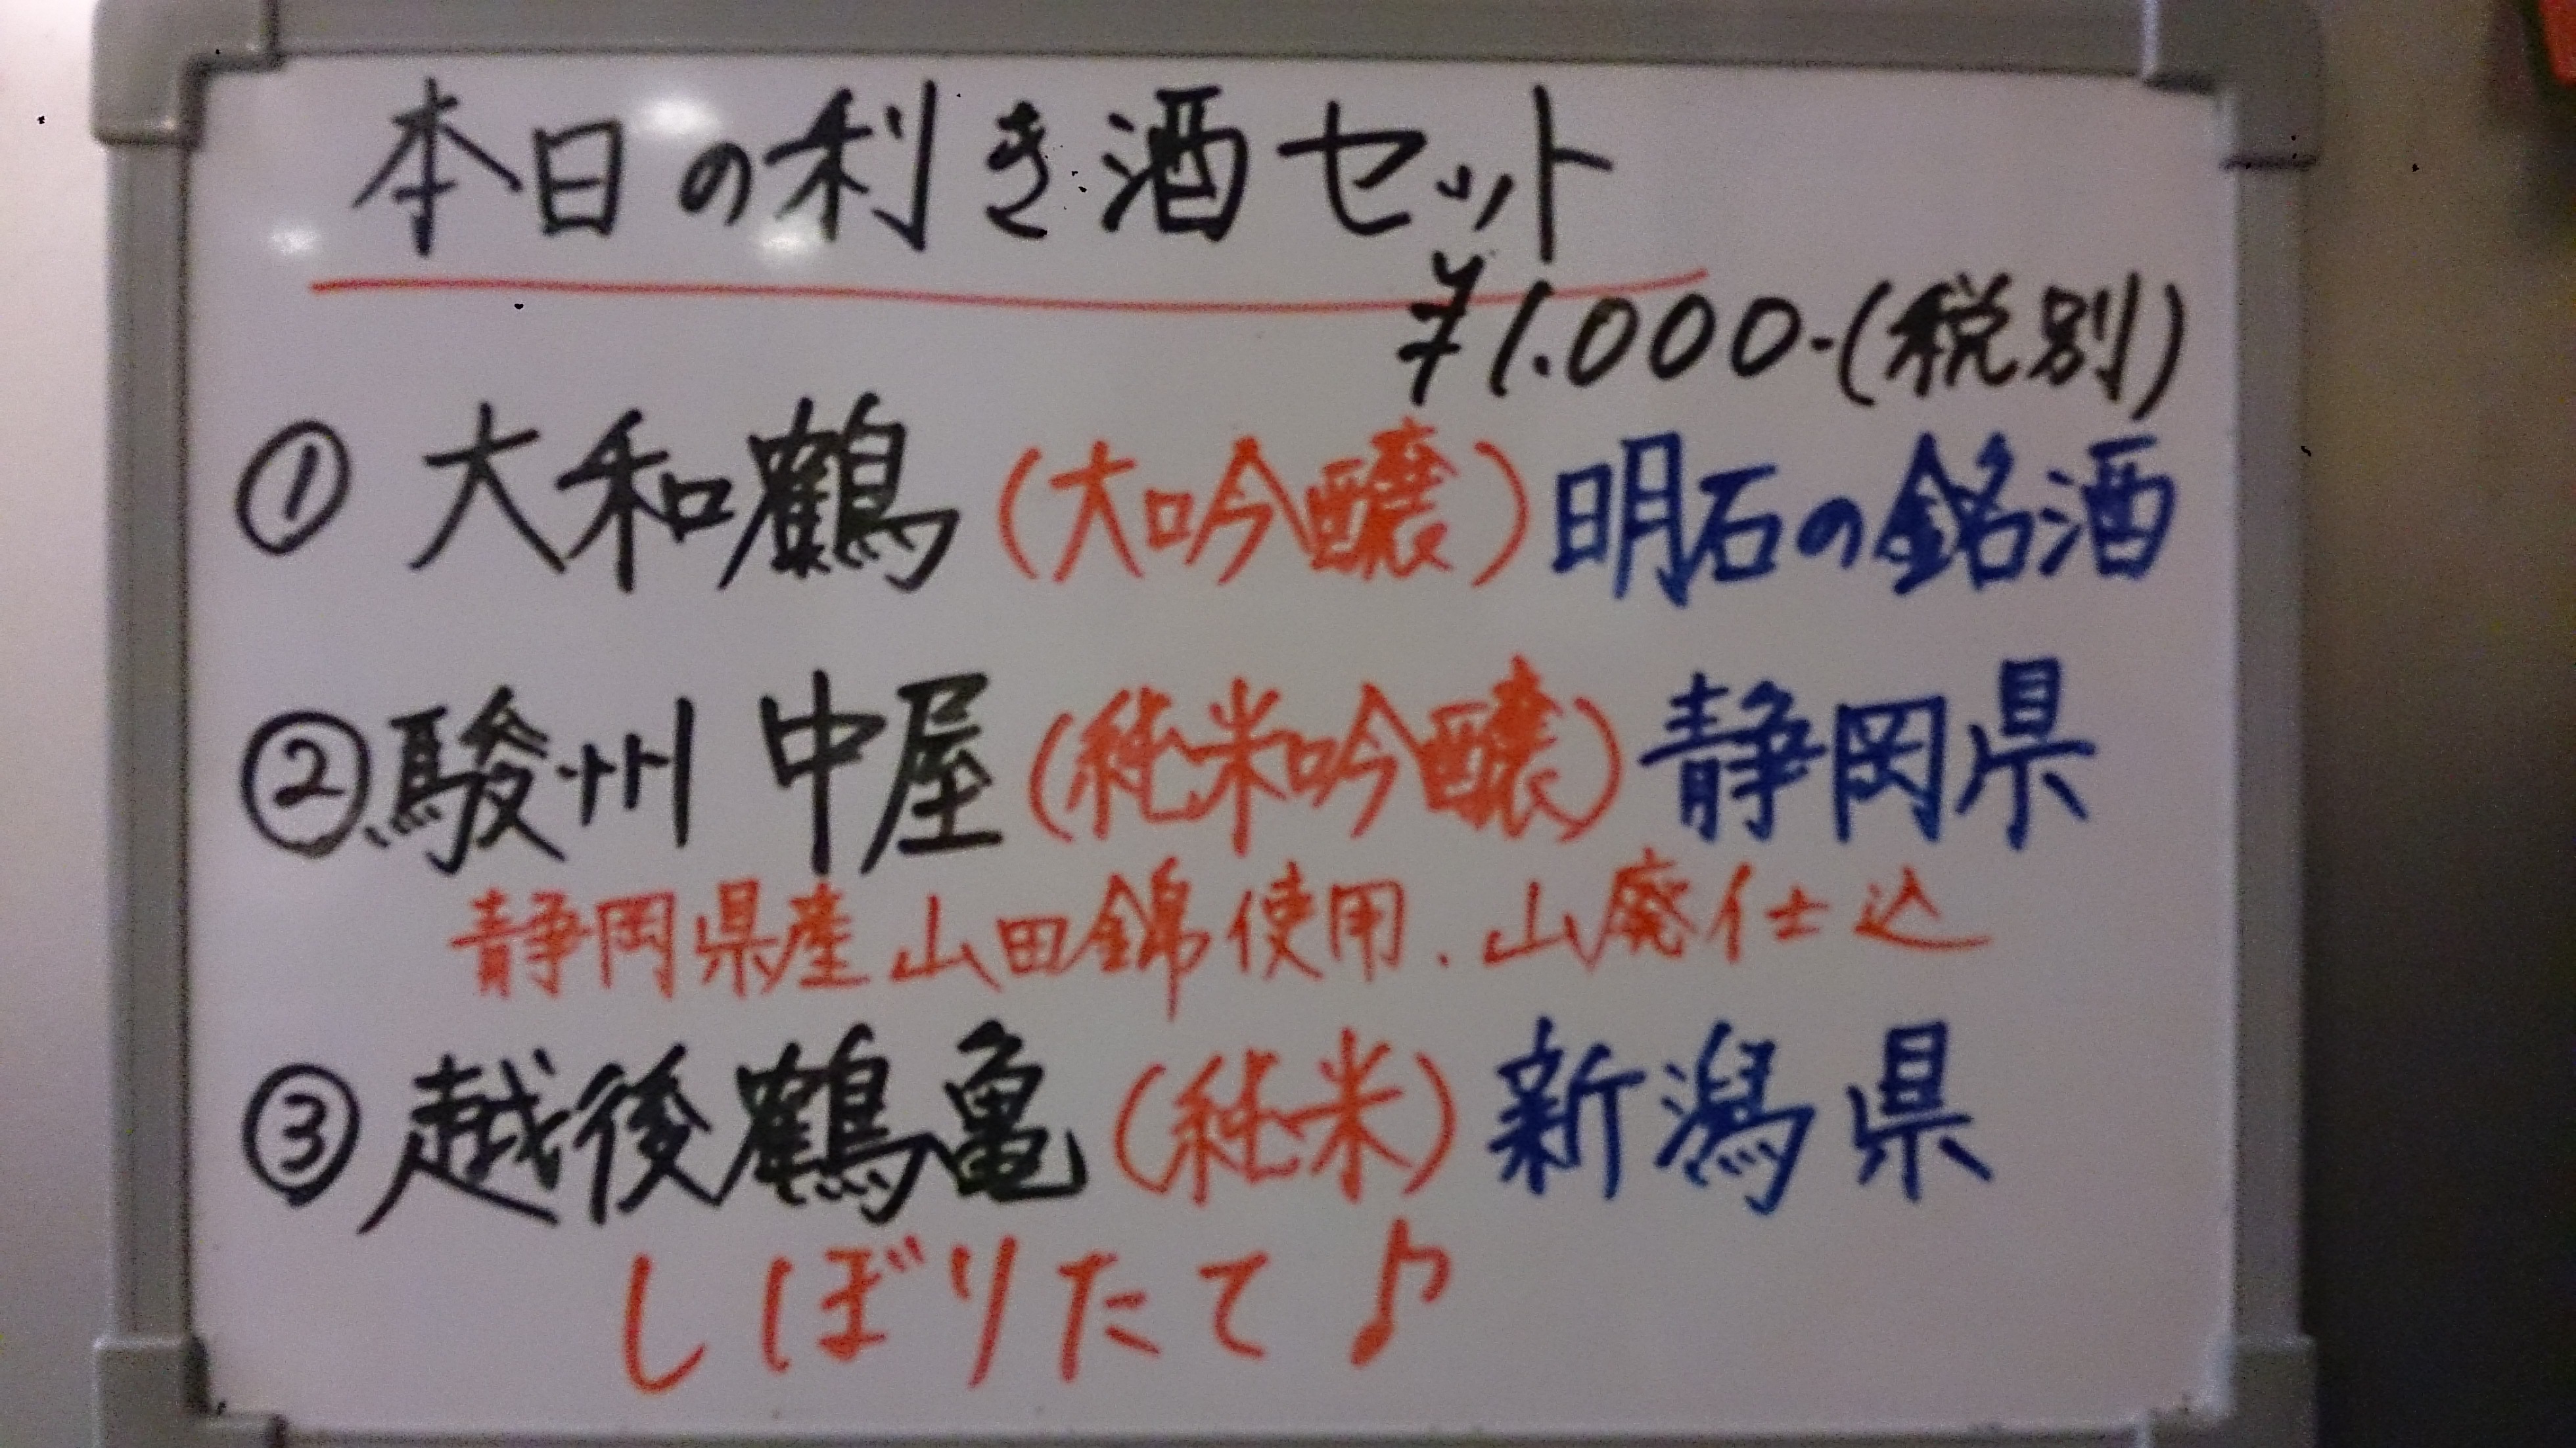 本日の利き酒セット
¥1.000-(税別)
① 大和鶴 (大吟醸) 明石の銘酒
② 駿州 中屋 (純米吟醸) 静岡県
静岡県産山田錦使用. 山廃仕込
③ 越後鶴亀 (純米) 新潟県
しぼりたて♪